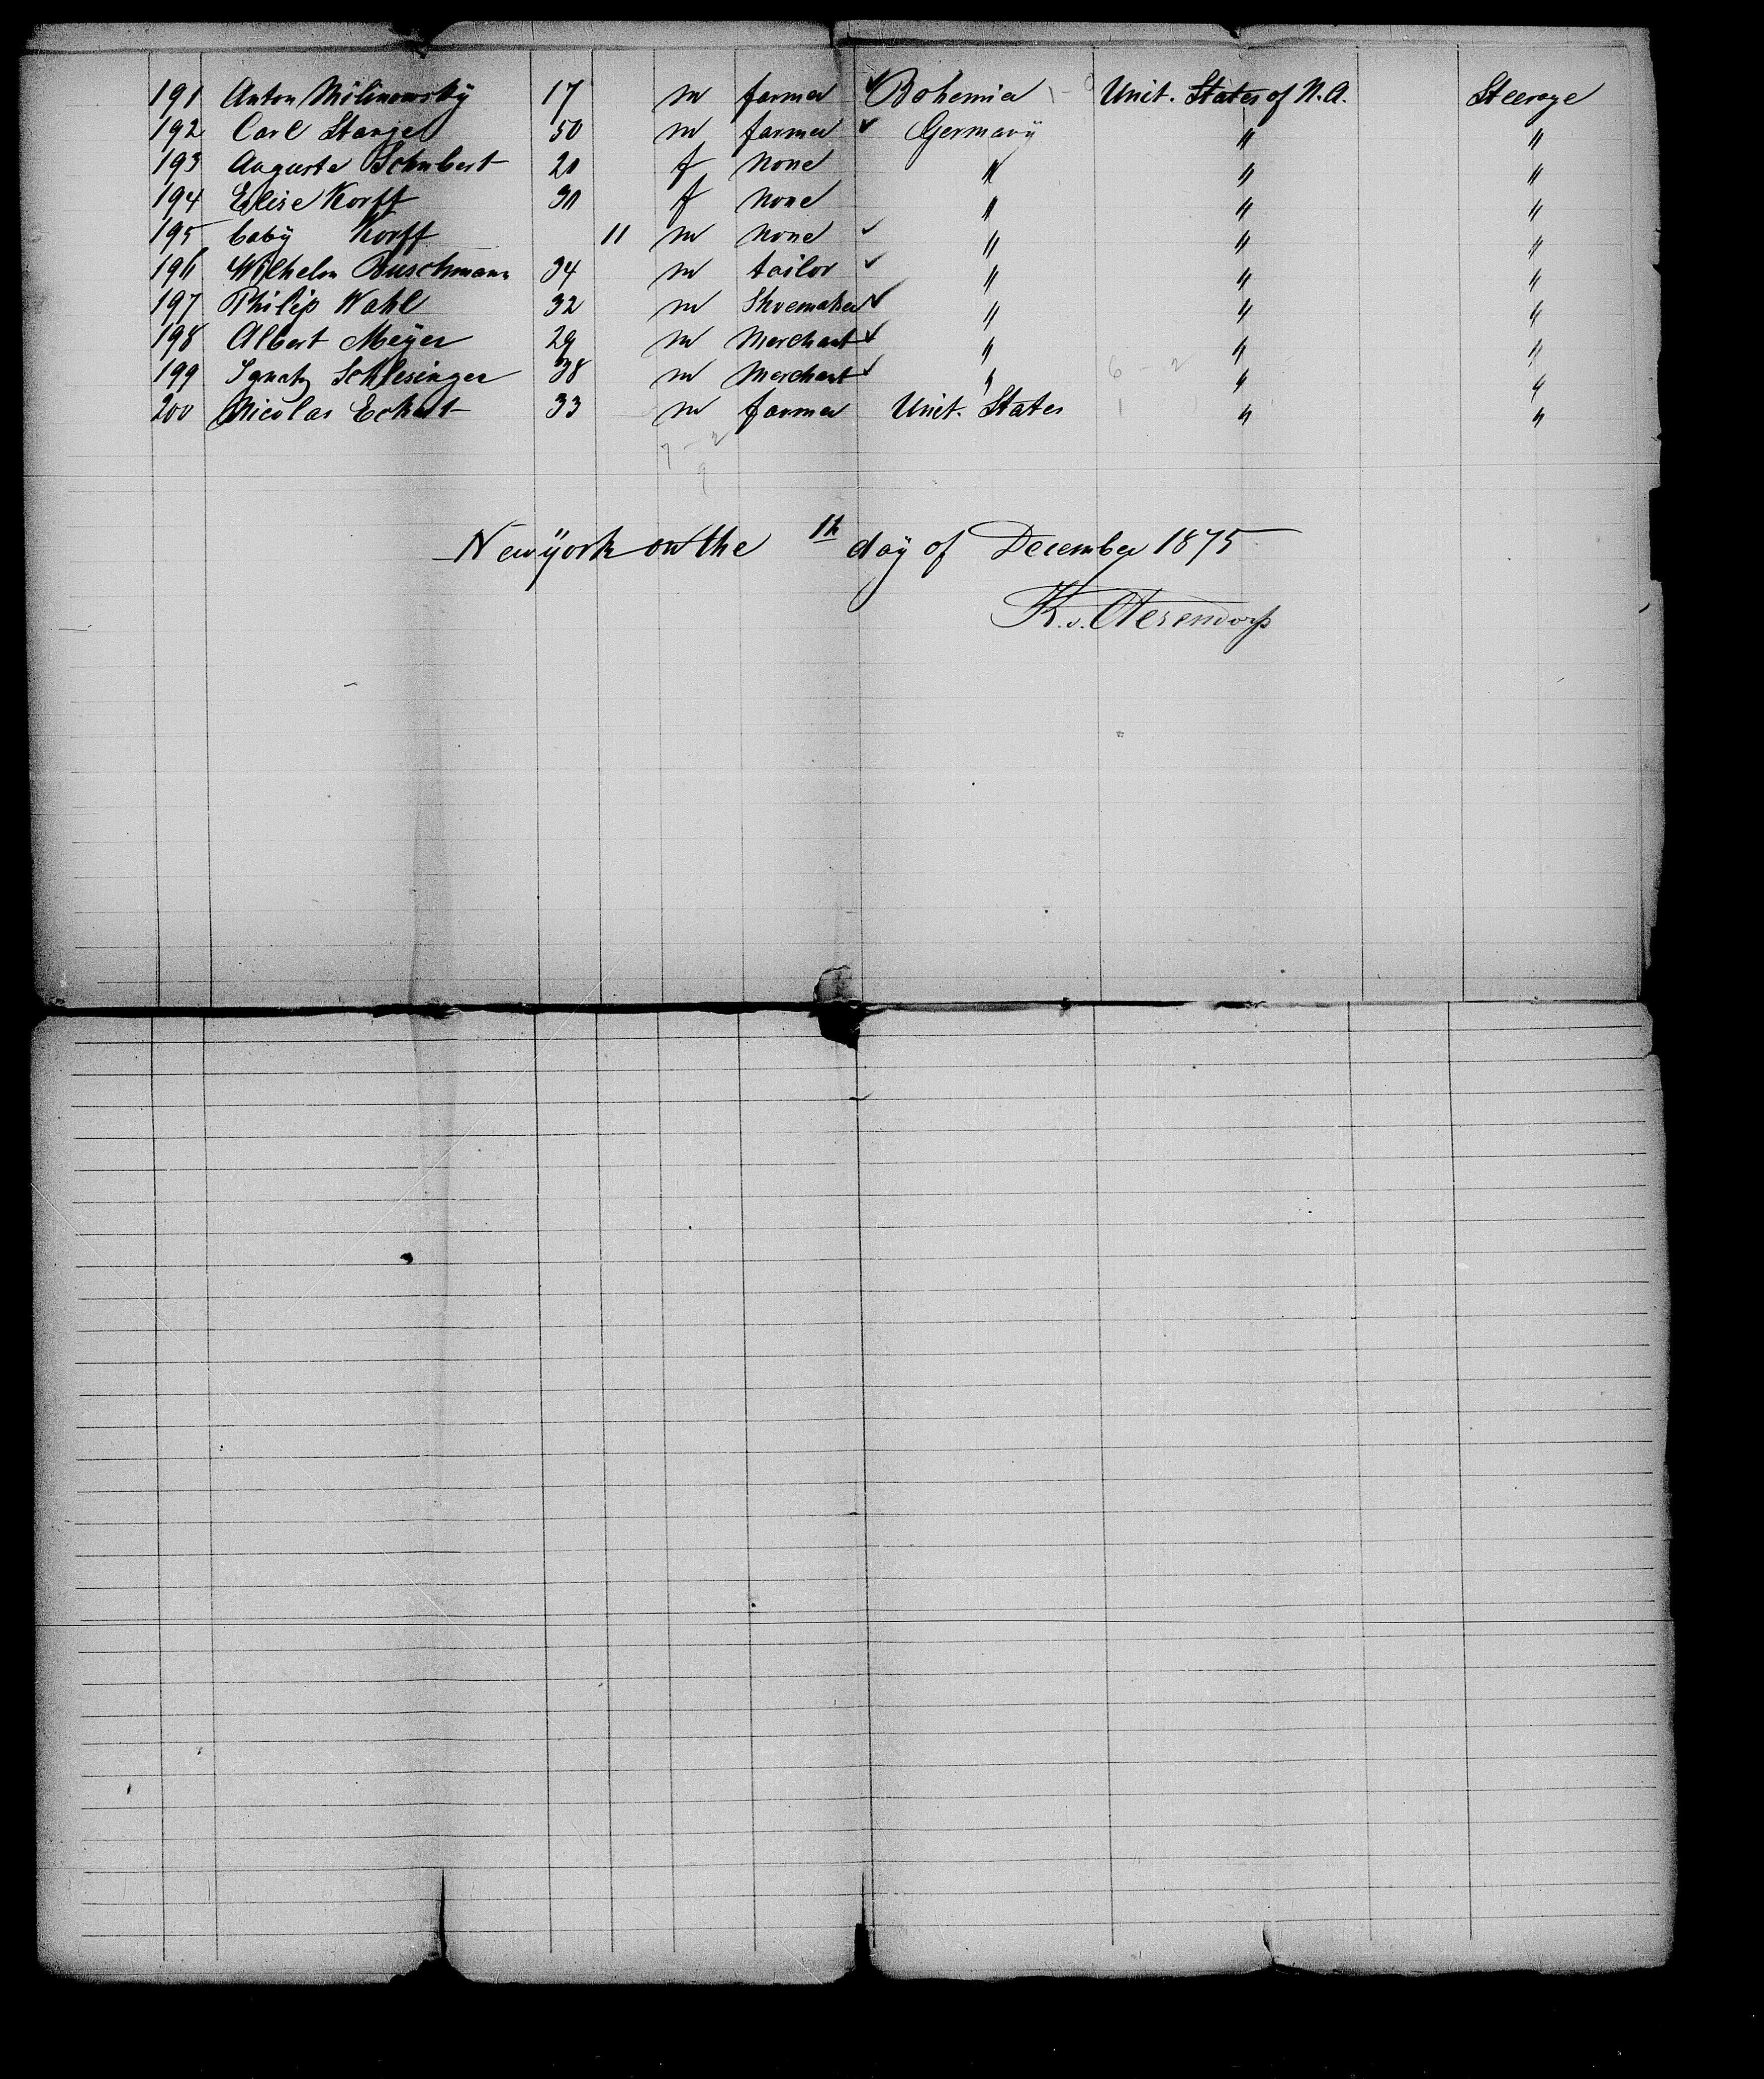 191 Anton Milinowsky 17 m farmer Bohemia Unit. States of N. A. Steerage
192 Carl Stange 50 m farmer Germany " "
193 Auguste Schubert 20 f none " " "
194 Elise Korff 30 f none " " "
195 baby Korff 11 m none " " "
196 Wilhelm Buschmann 34 m tailor " " "
197 Philip Wahl 32 m Shoemaker " " "
198 Albert Meyer 29 m Merchant " " "
199 Ignatz Schlesinger 38 m Merchant " " "
200 Nicolas Eckert 33 m farmer Unit. States " "
New york on the 1th day of December 1875
K. v. Oterendorp